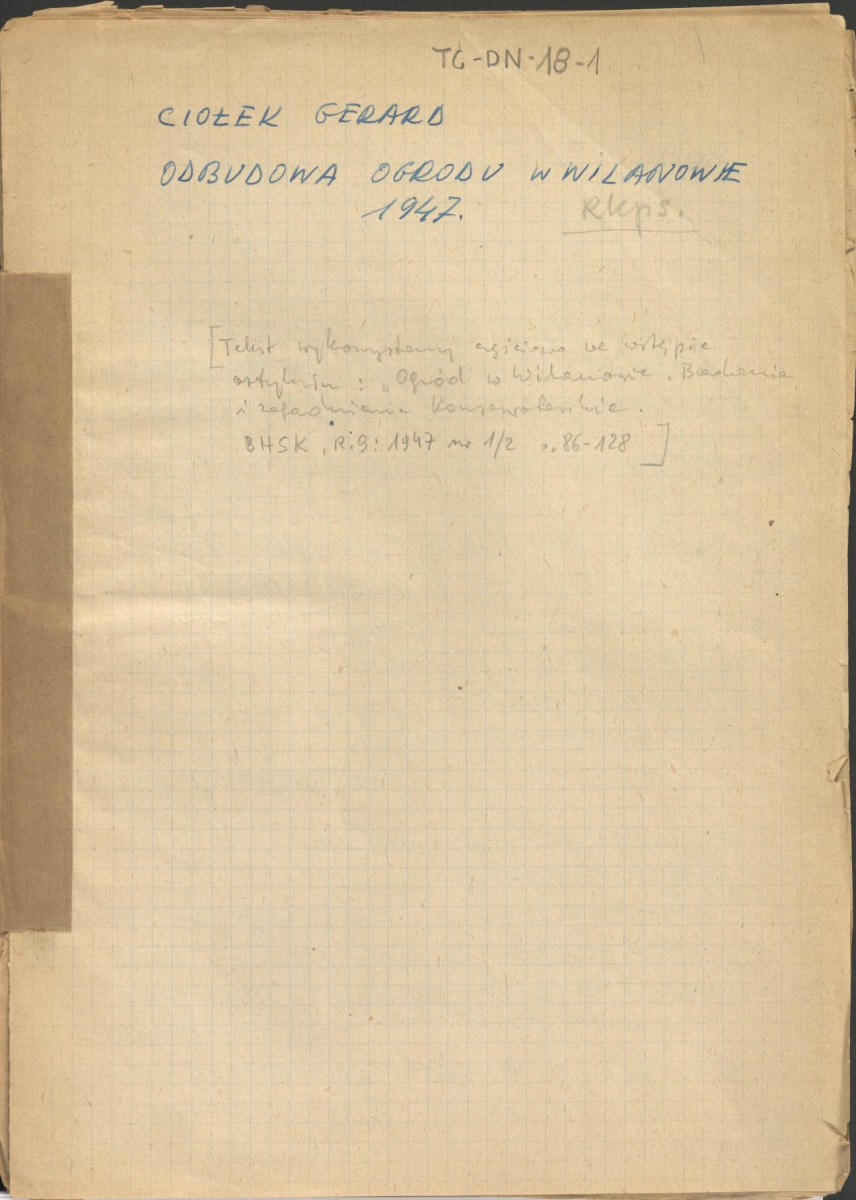 TG-DN-18-1
CIOŁEK GERARD
ODBUDOWA OGRODU W WILANOWIE
1947.
Rkps.
[Tekst wykorzystany częściowo we wstępie
artykułu: „Ogród w Wilanowie. Badania
i zagadnienia konserwatorskie.
BHSK, R.9: 1947 nr 1/2 s. 86-128]